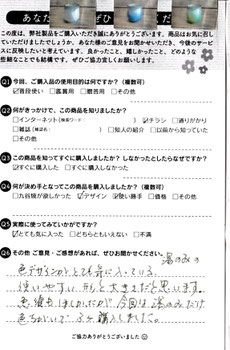 あなた ぜひ
この度は、弊社製品をご購入いただき誠にありがとうございます。商品はお気に召していただけましたでしょうか。あなた様のご意見をお聞かせいただき、今後のサービスに反映したいと考えています。良かったこと、嬉しかったこと、どのような些細なことでも結構です。ぜひご協力宜しくお願いします。
Q1 今回、ご購入品の使用目的は何ですか？（複数可）
☑普段使い □鑑賞用 □贈答用 □その他
Q2 何がきっかけで、この商品を知りましたか？
□インターネット（検索ワード・ ） ☑チラシ □通りがかり
□雑誌（雑誌名） □知人の紹介 □以前から知っていた
□その他
Q3 この商品を知ってすぐに購入しましたか？ しなかったとしたらなぜですか？
☑すぐに購入した □すぐに購入しなかった
Q4 何が決め手となってこの商品を購入しましたか？（複数可）
□九谷焼が欲しかった ☑デザイン ☑使い勝手 □価格 □その他
Q5 実際に使ってみていかがですか？
☑とても気に入った □どちらともいえない □不満
Q6 その他 ご意見・ご感想があれば、ぜひお聞かせください。 湯のみの
色デザインがとても気に入っている。
使いやすい形と大きさだと思います。
今回は湯のみだけ
購入しました。
ご協力ありがとうございました